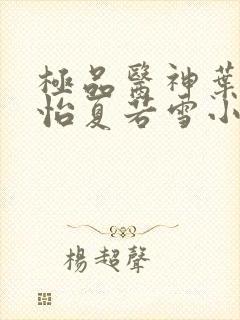 極品醫神葉
怡夏若雪小
楊超聲